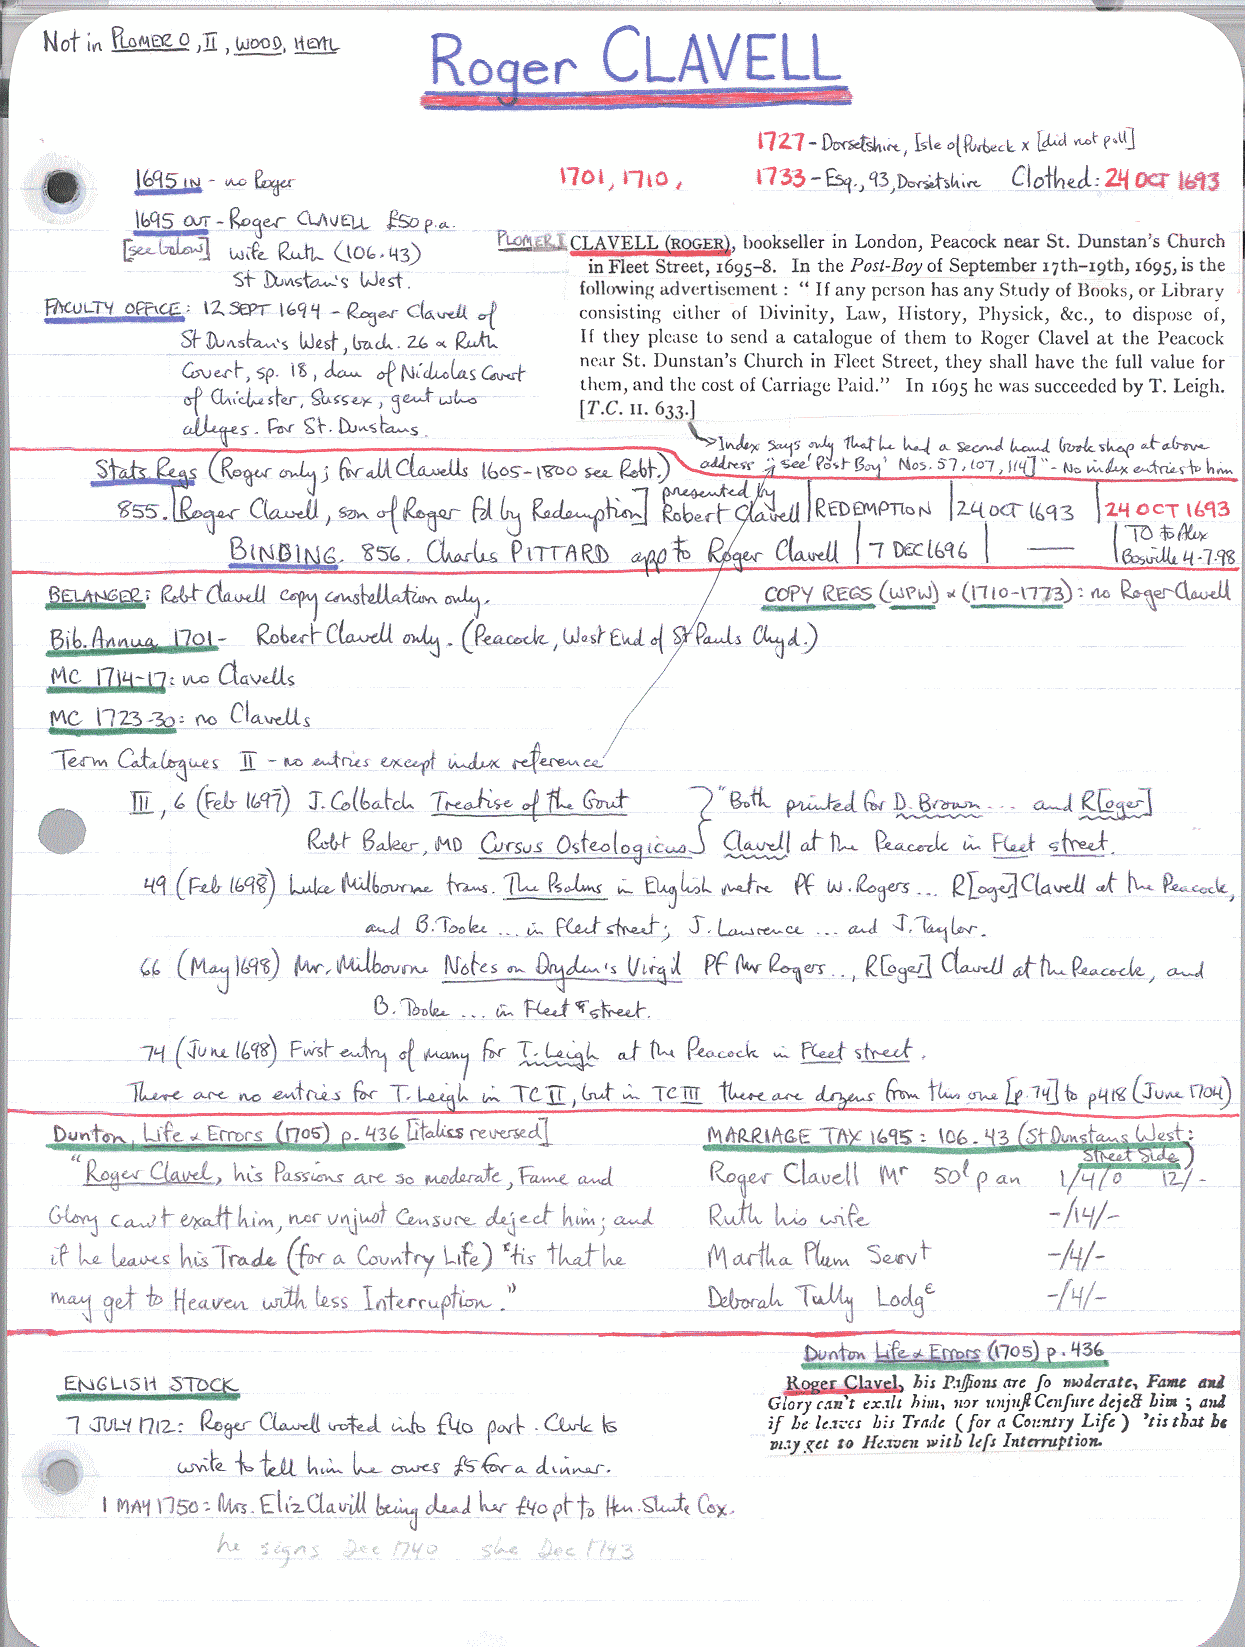 Not in PLOMER O, II, WOOD, HEAL
Roger CLAVELL
1727 - Dorsetshire, Isle of Purbeck x [did not poll]
1695 IN - no Roger
1701, 1710,
1733 - Esq., 93, Dorsetshire Clothed: 24 OCT 1693
1695 OUT - Roger CLAVELL £50 p.a.
[see below] wife Ruth (106.43)
St Dunstan's West.
FACULTY OFFICE: 12 SEPT 1694 - Roger Clavell of
St Dunstan's West, bach. 26 & Ruth
Covert, sp. 18, dau of Nicholas Covert
of Chichester, Sussex, gent who
alleges. For St. Dunstans.
PLOMER I CLAVELL (ROGER), bookseller in London, Peacock near St. Dunstan's Church
in Fleet Street, 1695-8. In the Post-Boy of September 17th-19th, 1695, is the
following advertisement : " If any person has any Study of Books, or Library
consisting either of Divinity, Law, History, Physick, &c., to dispose of,
If they please to send a catalogue of them to Roger Clavel at the Peacock
near St. Dunstan's Church in Fleet Street, they shall have the full value for
them, and the cost of Carriage Paid." In 1695 he was succeeded by T. Leigh.
[T.C. II. 633.]
Index says only that he had a second hand book shop at above
address "; see 'Post Boy' Nos. 57, 107, 114]" - No index entries to him
Stats Regs (Roger only; for all Clavells 1605-1800 see Robt.)
855. [Roger Clavell, son of Roger fd by Redemption] presented by Robert Clavell | REDEMPTION | 24 OCT 1693 | 24 OCT 1693
BINDING. 856. Charles PITTARD app to Roger Clavell | 7 DEC 1696 | — | TO to Alex
Bosville 4-7-98
BELANGER: Robt Clavell copy constellation only.
COPY REGS (WPW) & (1710-1773): no Roger Clavell
Bib. Annua 1701 - Robert Clavell only. (Peacock, West End of St Pauls Chyd.)
MC 1714-17: no Clavells
MC 1723-30: no Clavells
Term Catalogues II - no entries except index reference
III, 6 (Feb 1697) J. Colbatch Treatise of the Gout } "Both printed for D. Brown ... and R[oger]
Robt Baker, MD Cursus Osteologicus } Clavell at the Peacock in Fleet street.
49 (Feb 1698) Luke Milbourne trans. The Psalms in English metre PF W. Rogers ... R[oger] Clavell at the Peacock,
and B. Tooke ... in Fleet street; J. Lawrence ... and J. Taylor.
66 (May 1698) Mr. Milbourne Notes on Dryden's Virgil PF Mr Rogers ..., R[oger] Clavell at the Peacock, and
B. Tooke ... in Fleet street.
74 (June 1698) First entry of many for T. Leigh at the Peacock in Fleet street.
There are no entries for T. Leigh in TC II, but in TC III there are dozens from this one [p. 74] to p418 (June 1704)
Dunton, Life & Errors (1705) p. 436 [italics reversed]
"Roger Clavel, his Passions are so moderate, Fame and
Glory can't exalt him, nor unjust Censure deject him; and
if he leaves his Trade (for a Country Life) 'tis that he
may get to Heaven with less Interruption."
MARRIAGE TAX 1695: 106.43 (St Dunstans West:
Street Side)
Roger Clavell Mr 50l p an 1/4/0 12/-
Ruth his wife -/14/-
Martha Plum Servt -/4/-
Deborah Tully Lodge -/4/-
Dunton Life & Errors (1705) p. 436
Roger Clavel, his Paſſions are ſo moderate, Fame and
Glory can't exalt him, nor unjuſt Cenſure deject him ; and
if he leaves his Trade (for a Country Life) 'tis that he
may get to Heaven with leſs Interruption.
ENGLISH STOCK
7 JULY 1712: Roger Clavell voted into £40 part. Clerk to
write to tell him he owes £5 for a dinner.
1 MAY 1750: Mrs. Eliz Clavill being dead her £40 pt to Hen. Shute Cox.
he signs Dec 1740 she Dec 1743